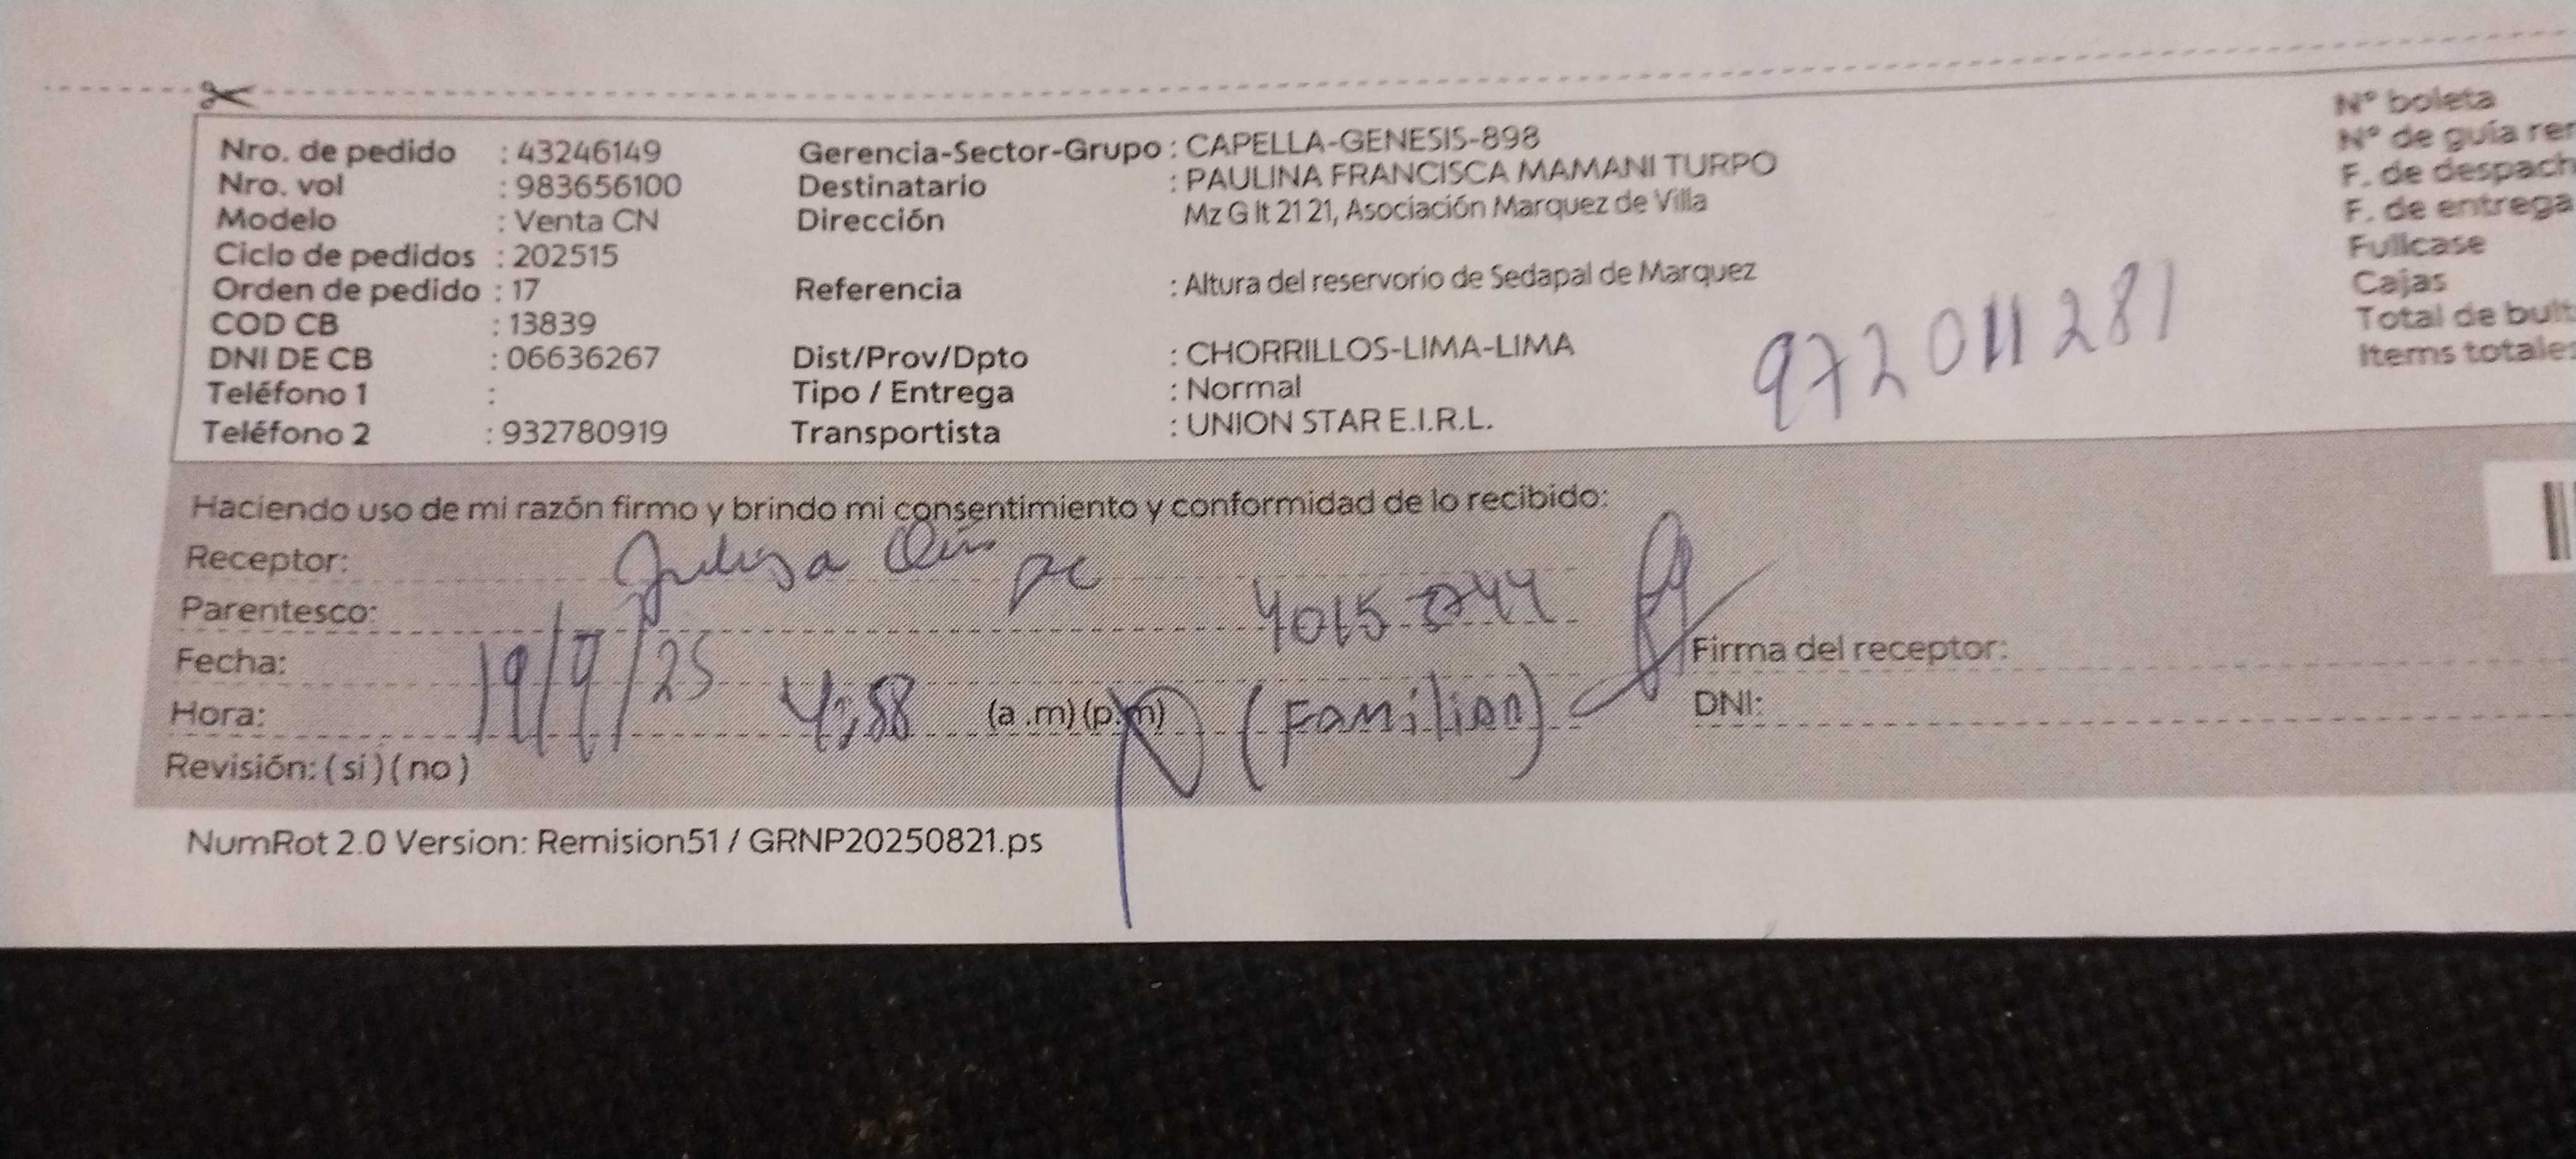 Nro. de pedido : 43246149
Nro. vol : 983656100
Modelo : Venta CN
Ciclo de pedidos : 202515
Orden de pedido : 17
COD CB : 13839
DNI DE CB : 06636267
Teléfono 1 :
Teléfono 2 : 932780919
Gerencia-Sector-Grupo : CAPELLA-GENESIS-898
Destinatario : PAULINA FRANCISCA MAMANI TURPO
Dirección Mz G lt 21 21, Asociación Marquez de Villa
Referencia : Altura del reservorio de Sedapal de Marquez
Dist/Prov/Dpto : CHORRILLOS-LIMA-LIMA
Tipo / Entrega : Normal
Transportista : UNION STAR E.I.R.L.
972011281
N° boleta
N° de guía
F. de
F. de entrega
Fullcase
Cajas
Total de
Items
Haciendo uso de mi razón firmo y brindo mi consentimiento y conformidad de lo recibido:
Receptor: Julisa
Parentesco:
Fecha: 19/9/25
Hora: 4:58 (a.m)(p.m) (Familiar)
Firma del receptor:
DNI:
Revisión: (si) (no)
NumRot 2.0 Version: Remision51 / GRNP20250821.ps